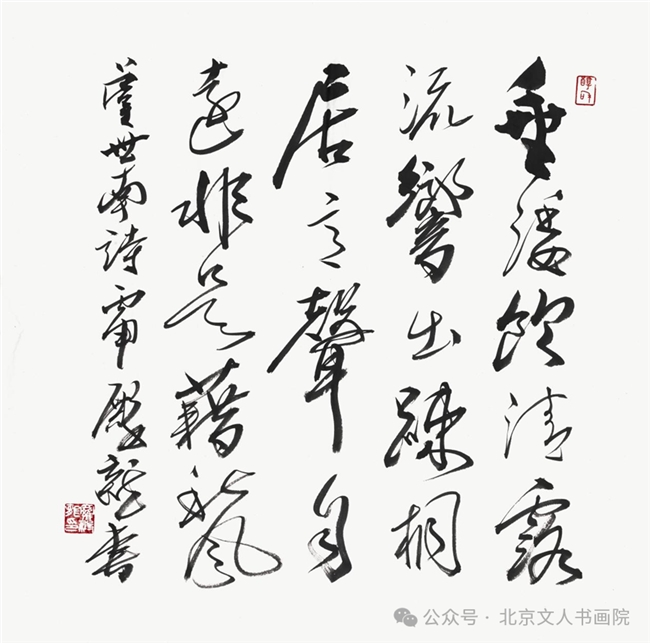 垂緌飲清露
流響出疎桐
居高聲自
遠非是藉秋風
虞世南詩 龍書
公众号 · 北京文人书画院